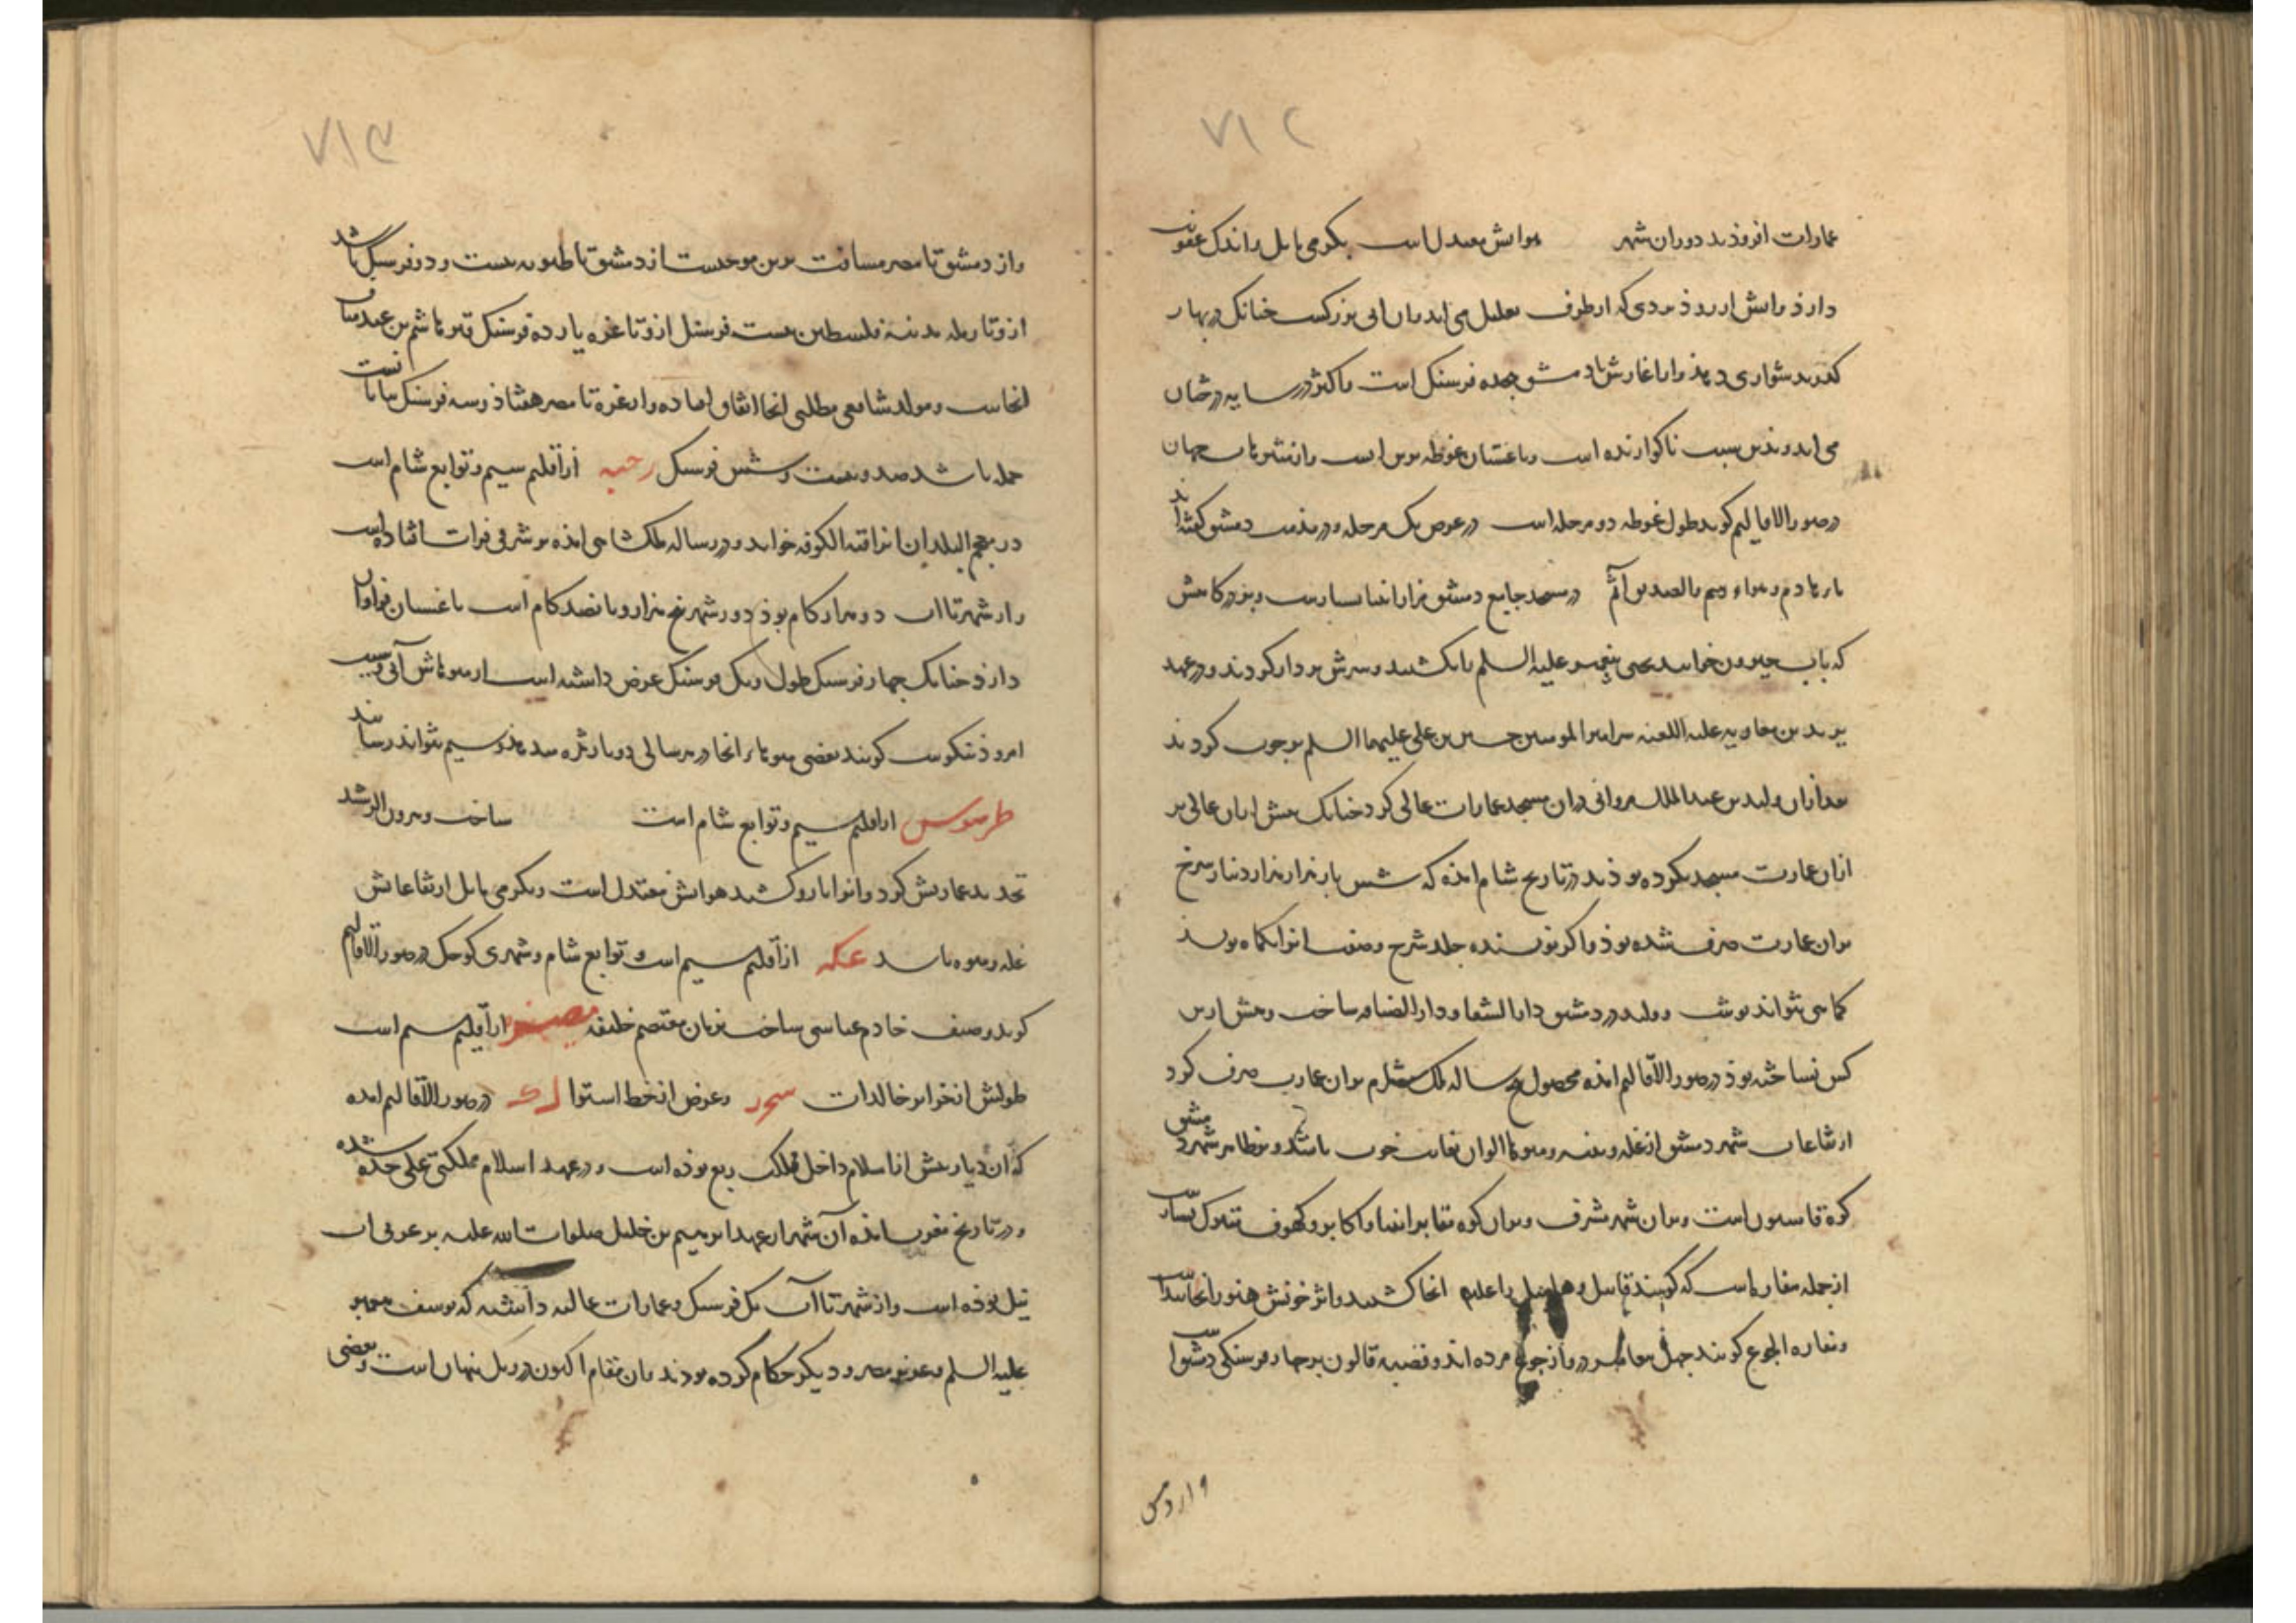 ۷۱۲
عمارات افزودند دوران شهر هوایش معتدل است بگرمی مایل و اندک عفونت
دارذ و آبش از روذ بردی که از طرف بعلبک می آید و آن آبی بزرگست چنانک در بهار
گذر بدشواری دهذ و از آغازش تا دمشق هجده فرسنگ است و اکثر در سایه درختان
می آید و بدین سبب ناگوارنده است و باغستان غوطه برین آبست و از مشاهیر جهان
در صور الاقالیم گوید طول غوطه دو مرحله است در عرض یک مرحله و در مذمت دمشق گفته اند
در مسجد جامع دمشق مزار انبیا بسیارست و بر درگاهش
که باب جیرون خوانند یحیی پیغمبر علیه السلم را بکشتند و سرش بر دار کردند و در عهد
یزید بن معاویه علیه اللعنه سر امیر المومنین حسین بن علی علیهما السلم بر چوب کردند
بعد از آن ولید بن عبد الملک مروانی در آن مسجد عمارات عالی کرد چنانک پیش از آن عالی تر
از آن عمارت مسجد نکرده بوذند در تاریخ شام امذه که شش بار هزار هزار دینار سرخ
بر آن عمارت صرف شده بوذ و اگر نویسنده جلد شرح وصف آنرا بکماه نویسد
کماهی نتواند نوشت و ولید در دمشق دار الشفا و دار الضیافه ساخت و پیش ازین
کس نساخته بوذ در صور الاقالیم امذه محصول پنج ساله ملک شام بر آن عمارت صرف کرد
ارتفاعات شهر دمشق از غله و پنبه و میوها الوان بغایت خوب باشد و بر ظاهر شهر دمشق
کوه قاسیون است و بر آن شهر مشرف و بر آن کوه مقابر انبیا و اکابر و کهوف متبرک بسیارست
از جمله مغاره ایست که گویند قابیل هابیل را علیه انجا کشت و اثر خونش هنوز انجا پیداست
و مغاره الجوع گویند چهل پیغامبر درو از جوع مرده اند و قصبه قالون بر چهار فرسنگی دمشق است
و از دمش
۷۱۳
و از دمشق تا مصر مسافت برین موجبست از دمشق تا طبریه بیست و دو فرسنگ باشد
ازو تا رمله مدینه فلسطین بیست فرسنگ ازو تا غزه یازده فرسنگ قبر هاشم بن عبد مناف
انجاست و مولد شافعی مطلبی انجا اتفاق افتاده و از غزه تا مصر هفتاذ و سه فرسنگ بیابانست
جمله باشد صد و بیست و شش فرسنگ رحبه از اقلیم سیم و توابع شام است
در معجم البلدان انرا قبه الکوفه خواند و در رساله ملکشاهی امذه بر شرقی فرات افتاده است
و از شهر تا آب دو هزار گام بوذ دور شهر پنج هزار و پانصد گام است باغستان فراوان
دارذ چنانک چهار فرسنگ طول و یک فرسنگ عرض داشته است از میوهاش آبی و سیب
امروذ نیکوست گویند بعضی میوهاء انجا در هر سالی دو بار ثمره میدهذ و سیم نتواند رسانید
طرسوس از اقلیم سیم و توابع شام است ساخت و هرون الرشید
تجدید عمارتش کرد و انرا بارو کشید هوایش معتدل است و بگرمی مایل ارتفاعاتش
غله و میوه باشد عکه از اقلیم سیم است و توابع شام و شهری کوچک در صور الاقالیم
گوید وصیف خادم عباسی ساخت بزمان معتصم خلیفه مصیصه از اقلیم سیم است
طولش از خزایر خالدات سحر و عرض از خط استوا لری در صور الاقالیم امده
که آن دیار پیش از اسلام داخل ملک ربع بوذه است و در عهد اسلام مملکتی علی حده شده
و در تاریخ مغرب امذه آن شهر از عهد ابرهیم بن خلیل صلوات الله علیه بر غربی آب
نیل بوذه است و از شهر تا آب یک فرسنگ و عمارات عالیه داشته که یوسف پیغمبر
علیه السلم و عزیز مصر و دیگر حکام کرده بودند و آن مقام اکنون در ریگ پنهان است و بعضی